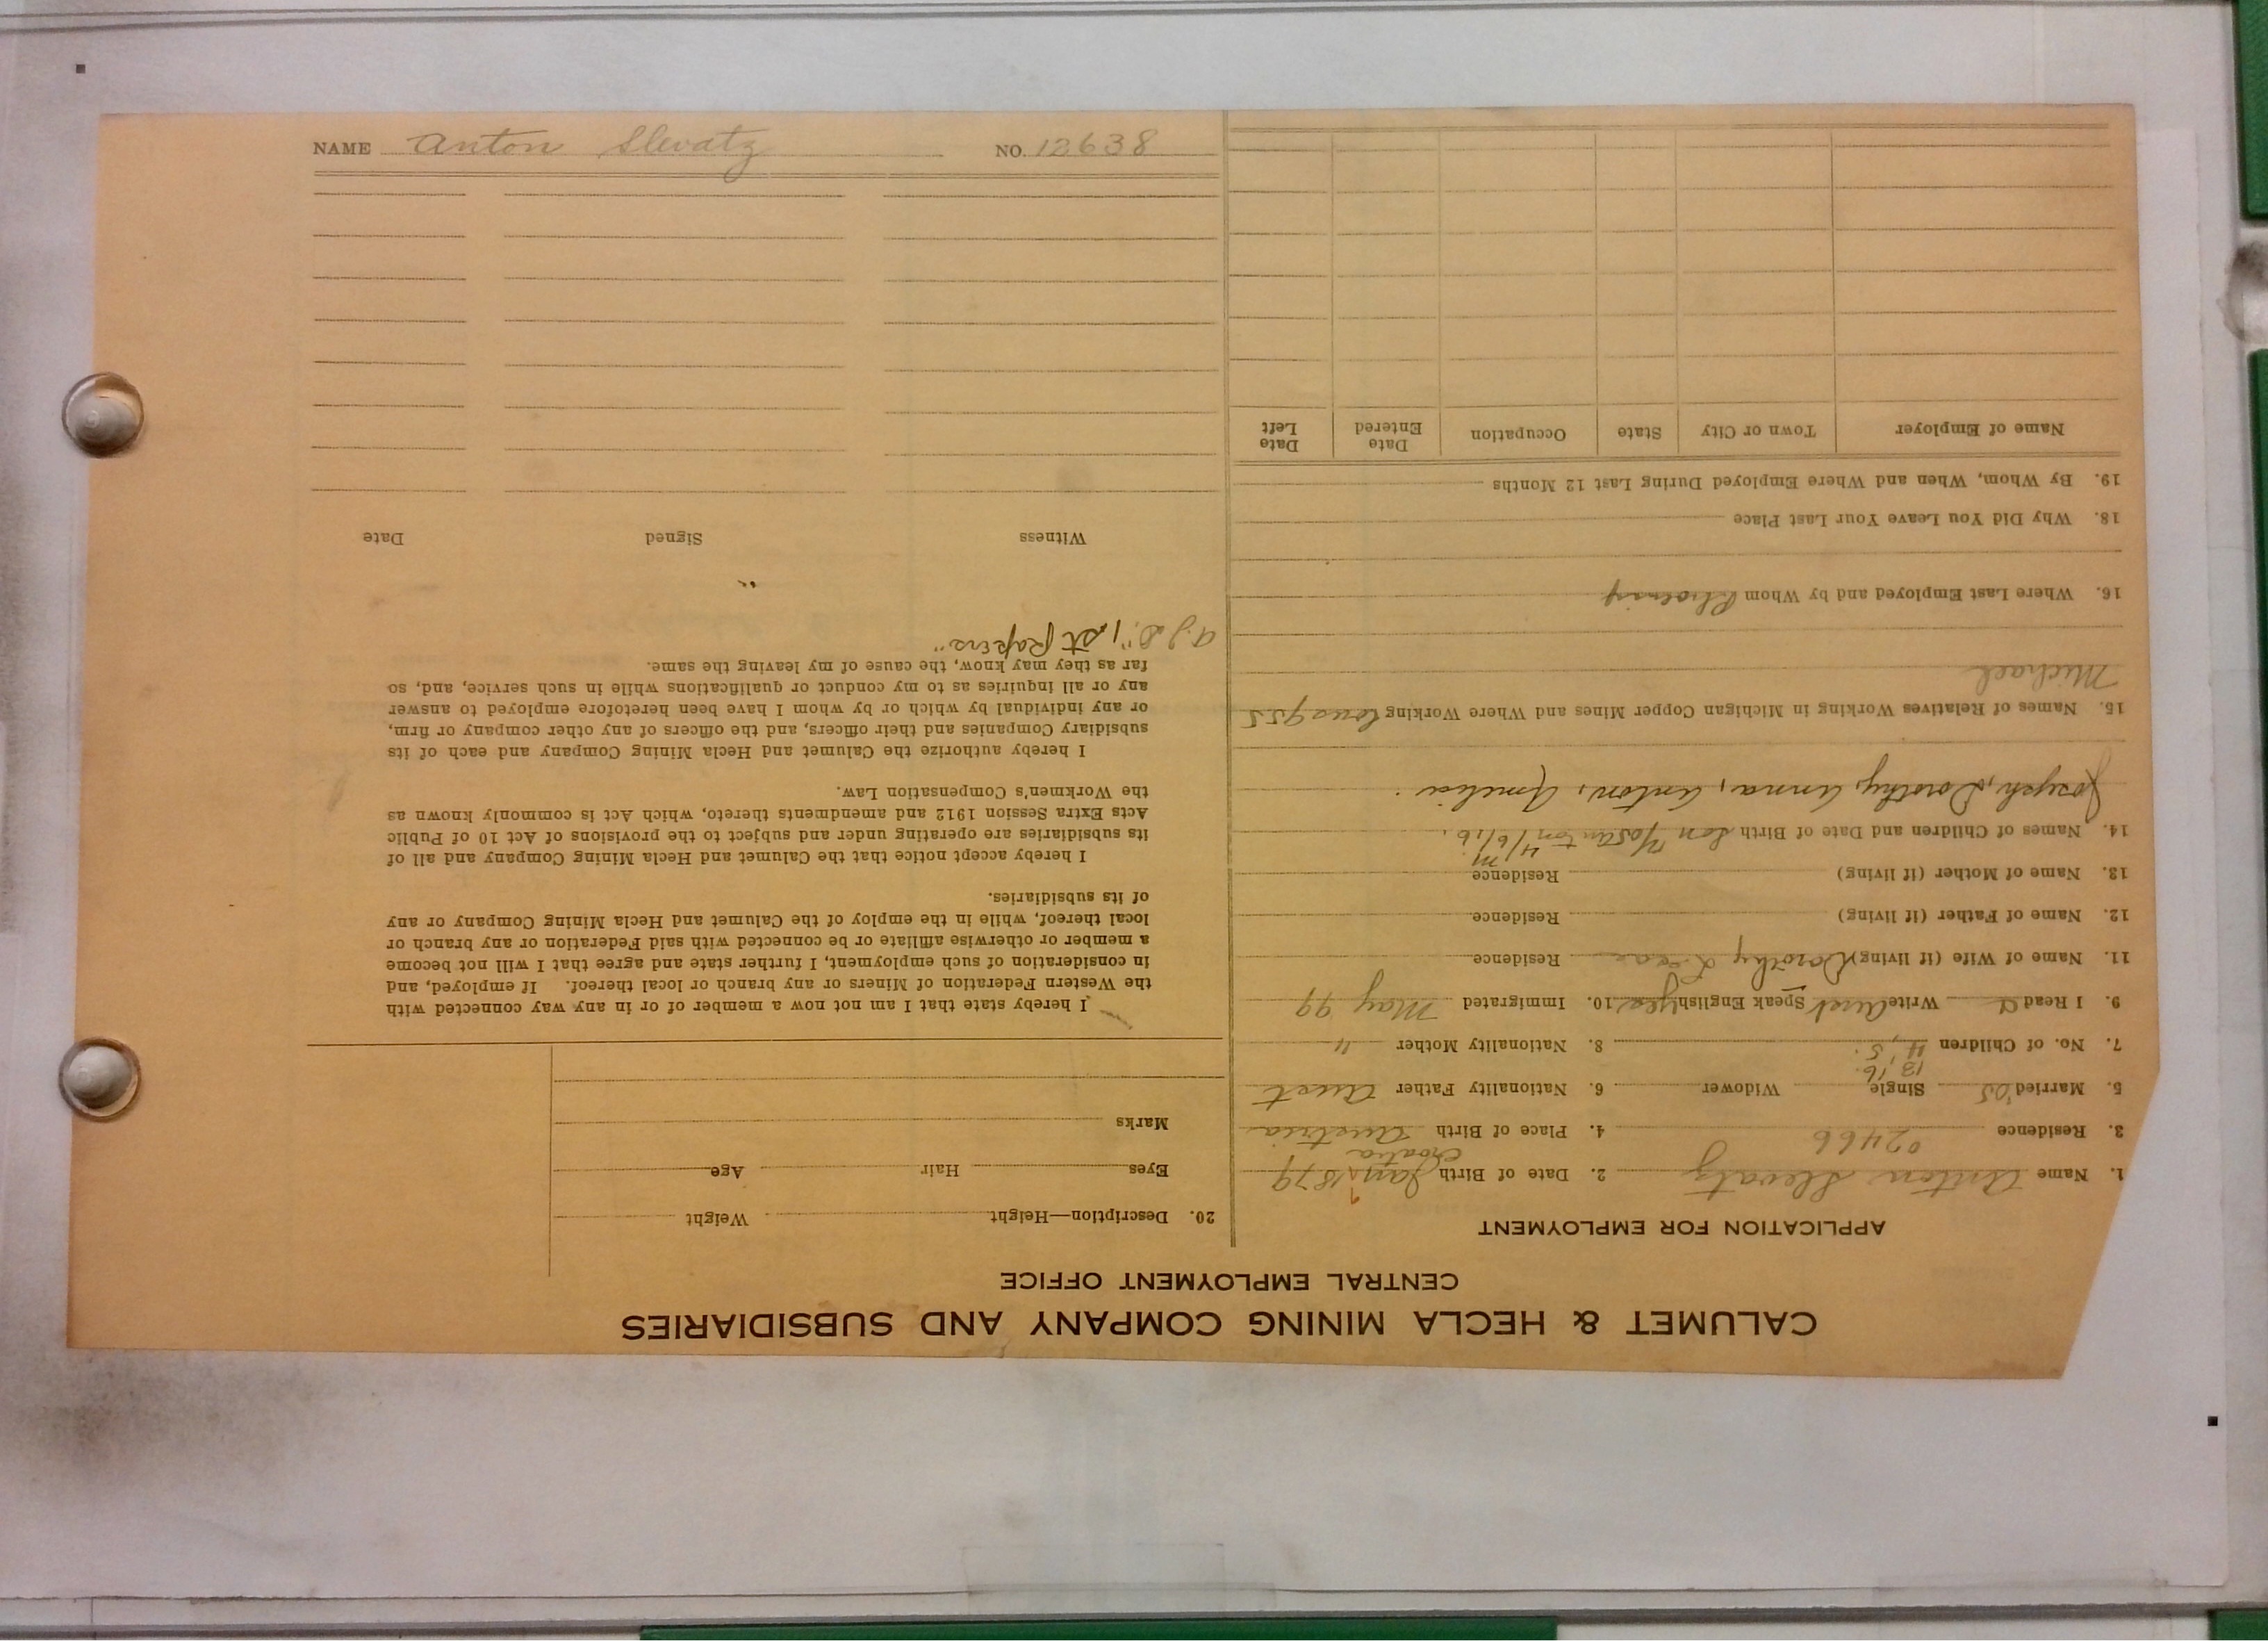 NAME Anton Slevatz NO. 12638
CALUMET & HECLA MINING COMPANY AND SUBSIDIARIES
CENTRAL EMPLOYMENT OFFICE
APPLICATION FOR EMPLOYMENT
1. Name Anton Slevatz 2. Date of Birth Jan 1879
Croatia
02466
3. Residence 4. Place of Birth Austria
5. Married '05 Single Widower 6. Nationality Father Aust
13, 16.
7. No. of Children 4, 5. 8. Nationality Mother "
9. I Read a Write Aust Speak English yes 10. Immigrated May 99
11. Name of Wife (if living) Dorothy Residence
12. Name of Father (if living) Residence
13. Name of Mother (if living) Residence
14. Names of Children and Date of Birth Son 4/6/16.
Joseph, Dorothy, Anna, Anton, Amelia.
15. Names of Relatives Working in Michigan Copper Mines and Where Working
Michael
16. Where Last Employed and by Whom
18. Why Did You Leave Your Last Place
19. By Whom, When and Where Employed During Last 12 Months
Name of Employer Town or City State Occupation Date Entered Date Left
20. Description—Height Weight
Eyes Hair Age
Marks
I hereby state that I am not now a member of or in any way connected with
the Western Federation of Miners or any branch or local thereof. If employed, and
in consideration of such employment, I further state and agree that I will not become
a member or otherwise affiliate or be connected with said Federation or any branch or
local thereof, while in the employ of the Calumet and Hecla Mining Company or any
of its subsidiaries.
I hereby accept notice that the Calumet and Hecla Mining Company and all of
its subsidiaries are operating under and subject to the provisions of Act 10 of Public
Acts Extra Session 1912 and amendments thereto, which Act is commonly known as
the Workmen's Compensation Law.
I hereby authorize the Calumet and Hecla Mining Company and each of its
subsidiary Companies and their officers, and the officers of any other company or firm,
or any individual by which or by whom I have been heretofore employed to answer
any or all inquiries as to my conduct or qualifications while in such service, and, so
far as they may know, the cause of my leaving the same.
"1st Papers"
Witness Signed Date